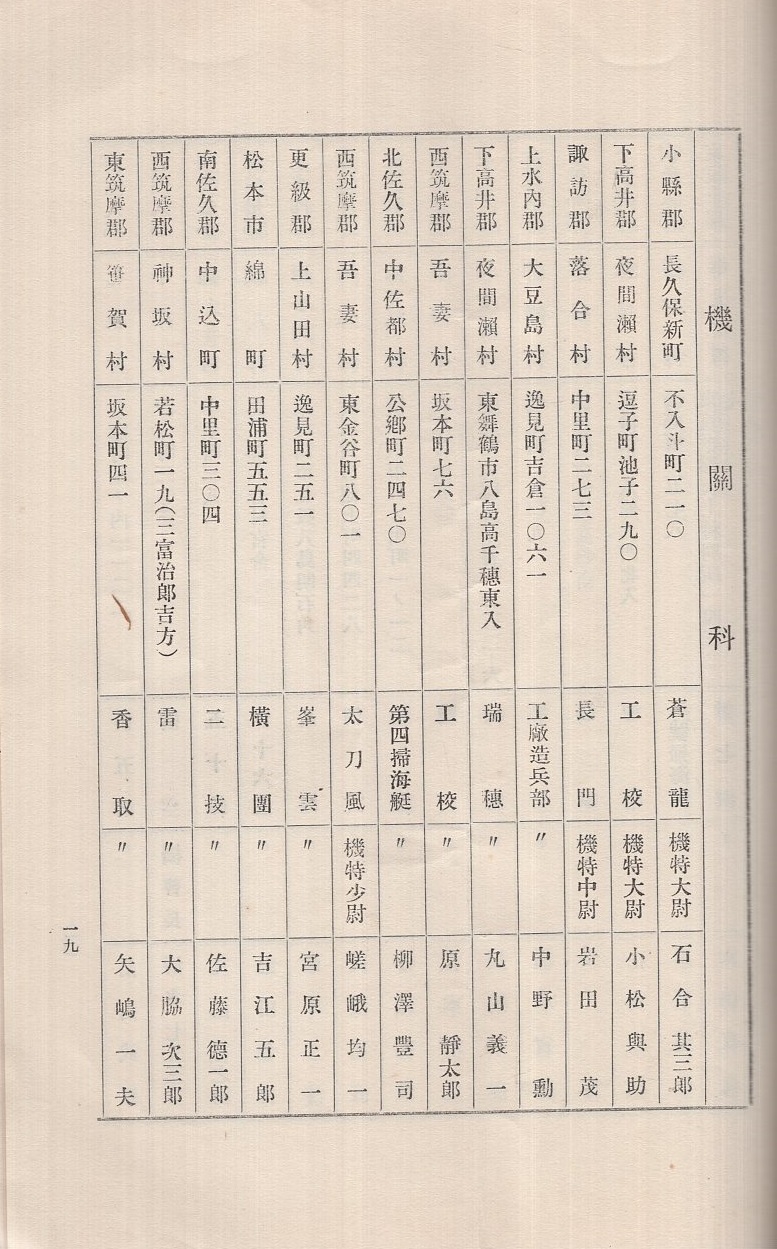 機關科
小縣郡 長久保新町 不入斗町二一〇 蒼龍 機特大尉 石合其三郎
下高井郡 夜間瀬村 逗子町池子二九〇 工校 機特大尉 小松與助
諏訪郡 落合村 中里町二七三 長門 機特中尉 岩田茂
上水內郡 大豆島村 逸見町吉倉一〇六一 工廠造兵部 〃 中野勳
下高井郡 夜間瀬村 東舞鶴市八島高千穗東入 瑞穗 〃 丸山義一
西筑摩郡 吾妻村 坂本町七六 工校 〃 原靜太郎
北佐久郡 中佐都村 公鄕町二四七〇 第四掃海艇 〃 柳澤豐司
西筑摩郡 吾妻村 東金谷町八〇一 太刀風 機特少尉 嵯峨均一
更級郡 上山田村 逸見町二五一 峯雲 〃 宮原正一
松本市 綿町 田浦町五五三 橫十六團 〃 吉江五郎
南佐久郡 中込町 中里町三〇四 二十技 〃 佐藤德一郎
西筑摩郡 神坂村 若松町一九(三富治郎吉方) 雷 〃 大脇次三郎
東筑摩郡 笹賀村 坂本町四一 香取 〃 矢嶋一夫
一九